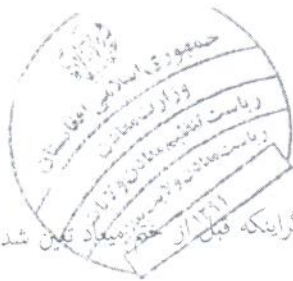 جمهوری اسلامی افغانستان
وزارت معادن
ریاست تنظیم معادن و
ریاست معادن و
۱۳۹۱
قبل از ختم میعاد تعین شد